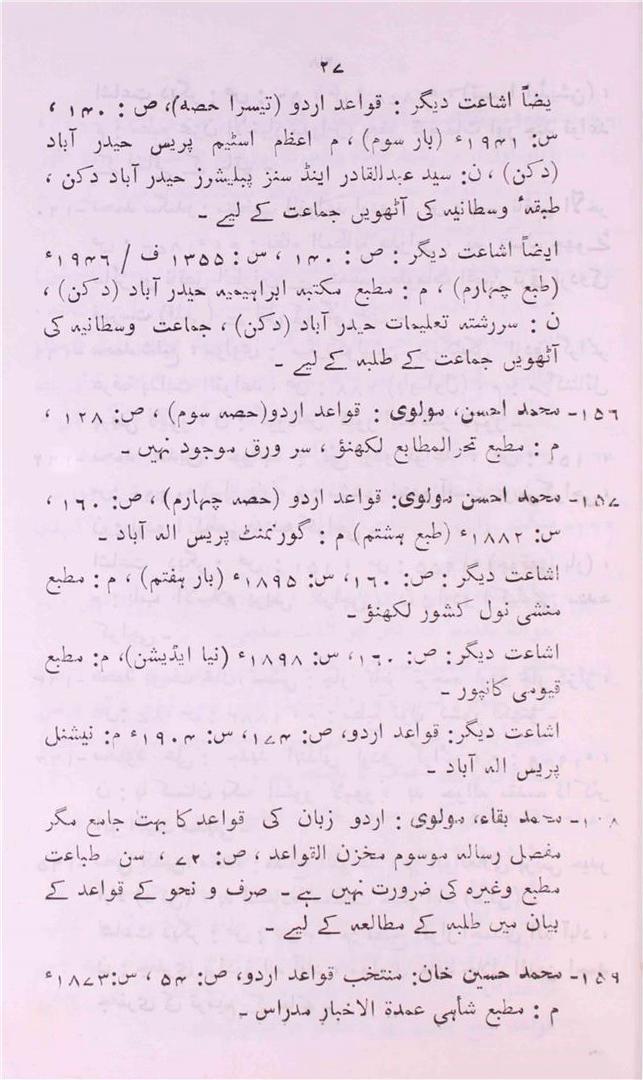 ۲۷
یضاً اشاعت دیگر : قواعد اردو (تیسرا حصہ)، ص : ۱۴۰ ،
س: ۱۹۴۱ء (بار سوم) ، م اعظم اسٹیم پریس حیدر آباد
(دکن) ، ن: سید عبدالقادر اینڈ سنز پبلیشرز حیدر آباد دکن ،
طبقۂ وسطانیہ کی آٹھویں جماعت کے لیے ۔
ایضاً اشاعت دیگر : ص : ۱۴۰ ، س : ۱۳۵۵ ف / ۱۹۴۶ء
(طبع چہارم) ، م : مطبع مکتبہ ابراہیمیہ حیدر آباد (دکن) ،
ن : سررشتہ تعلیمات حیدر آباد (دکن) ، جماعت وسطانیہ کی
آٹھویں جماعت کے طلبہ کے لیے ۔
۱۵۶۔ محمد احسن، مولوی : قواعد اردو(حصہ سوم) ، ص: ۱۲۸ ،
م : مطبع تحرالمطابع لکھنؤ ، سر ورق موجود نہیں ۔
۱۵۷۔ محمد احسن مولوی: قواعد اردو (حصہ چہارم) ، ص: ۱۶۰ ،
س: ۱۸۸۲ء (طبع ہشتم) م : گورنمنٹ پریس الہ آباد ۔
اشاعت دیگر : ص: ۱۶۰، س: ۱۸۹۵ء (بار ہفتم) ، م : مطبع
منشی نول کشور لکھنؤ ۔
اشاعت دیگر : ص: ۱۶۰، س: ۱۸۹۸ء (نیا ایڈیشن)، م: مطبع
قیومی کانپور ۔
اشاعت دیگر : قواعد اردو، ص: ۱۷۴، س: ۱۹۰۴ء م: نیشنل
پریس الہ آباد ۔
۱۰۸۔ محمد بقاء، مولوی : اردو زبان کی قواعد کا بہت جامع مگر
مفصل رسالہ موسوم مخزن القواعد ، ص: ۷۲ ، سن طباعت
مطبع وغیرہ کی ضرورت نہیں ہے ۔ صرف و نحو کے قواعد کے
بیان میں طلبہ کے مطالعہ کے لیے ۔
۱۵۹۔ محمد حسین خان: منتخب قواعد اردو، ص: ۵۴ ، س: ۱۸۷۳ء
م : مطبع شاہی عمدۃ الاخبار مدراس ۔